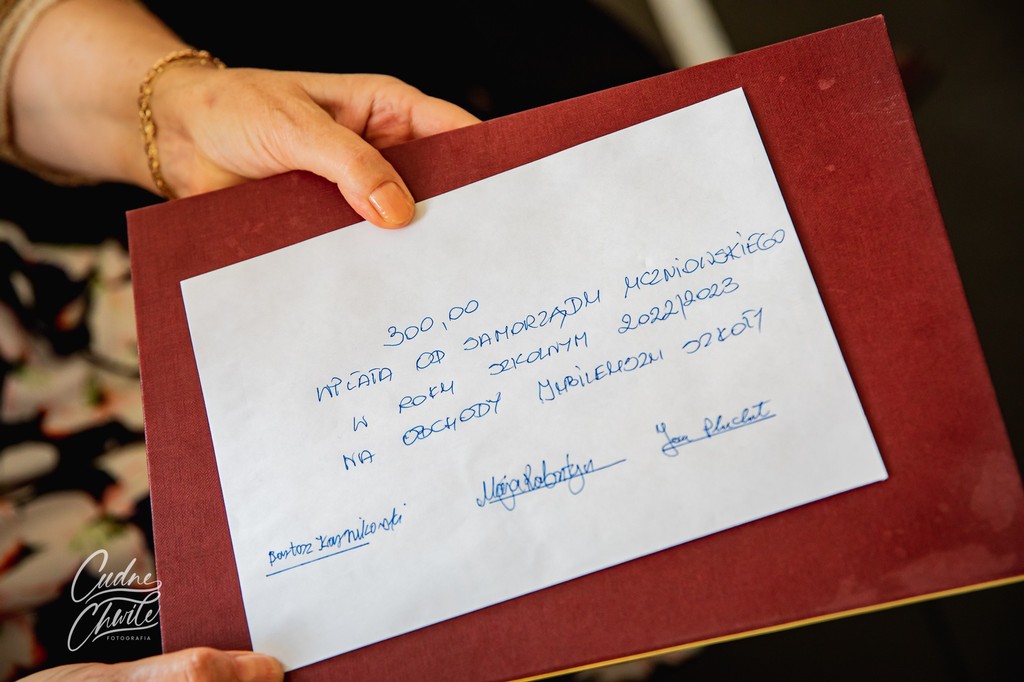 300,00
WPŁATA OD SAMORZĄDU UCZNIOWSKIEGO
W ROKU SZKOLNYM 2022/2023
NA OBCHODY JUBILEUSZU SZKOŁY
Jan
Maja
Bartosz Karnikowski
Cudne
Chwile
FOTOGRAFIA